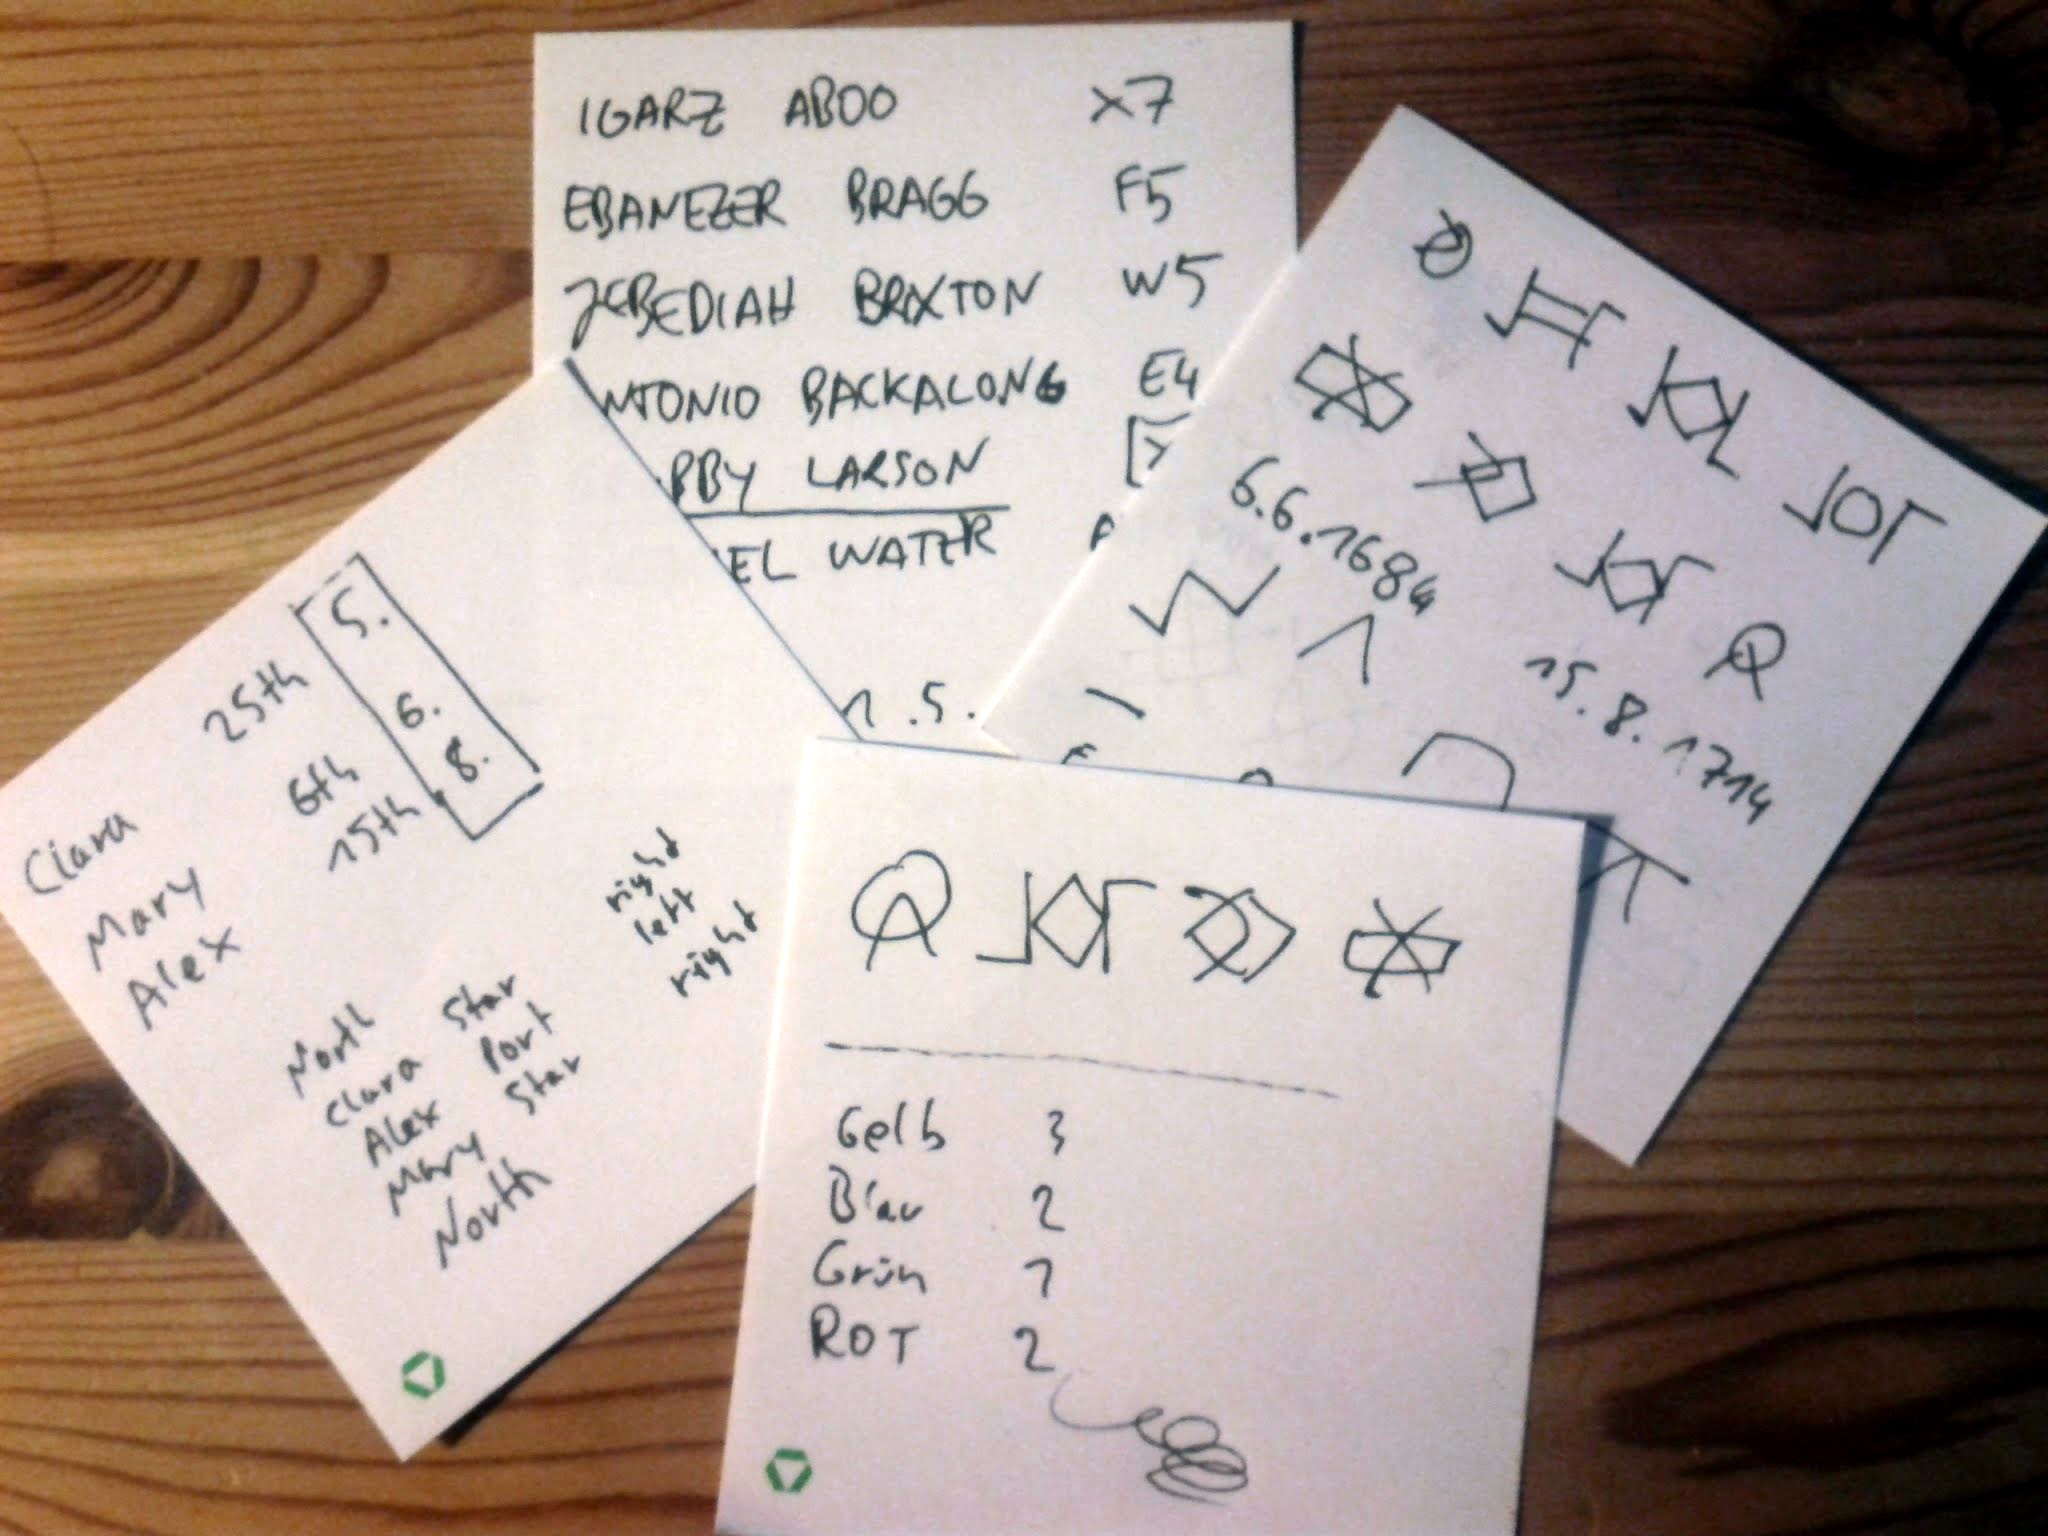 IGARZ ABOO X7
EBANEZER BRAGG F5
JEBEDIAH BRIXTON W5
NTONIO BACKALONG E4
BBY LARSON
EL WATER
1.5.
6.6.1684
15.8.1714
Clara 25th 5.
Mary 6th 6.
Alex 15th 8.
North Star right
Clara Port left
Alex Star right
Mary
North
Gelb 3
Blau 2
Grün 1
ROT 2